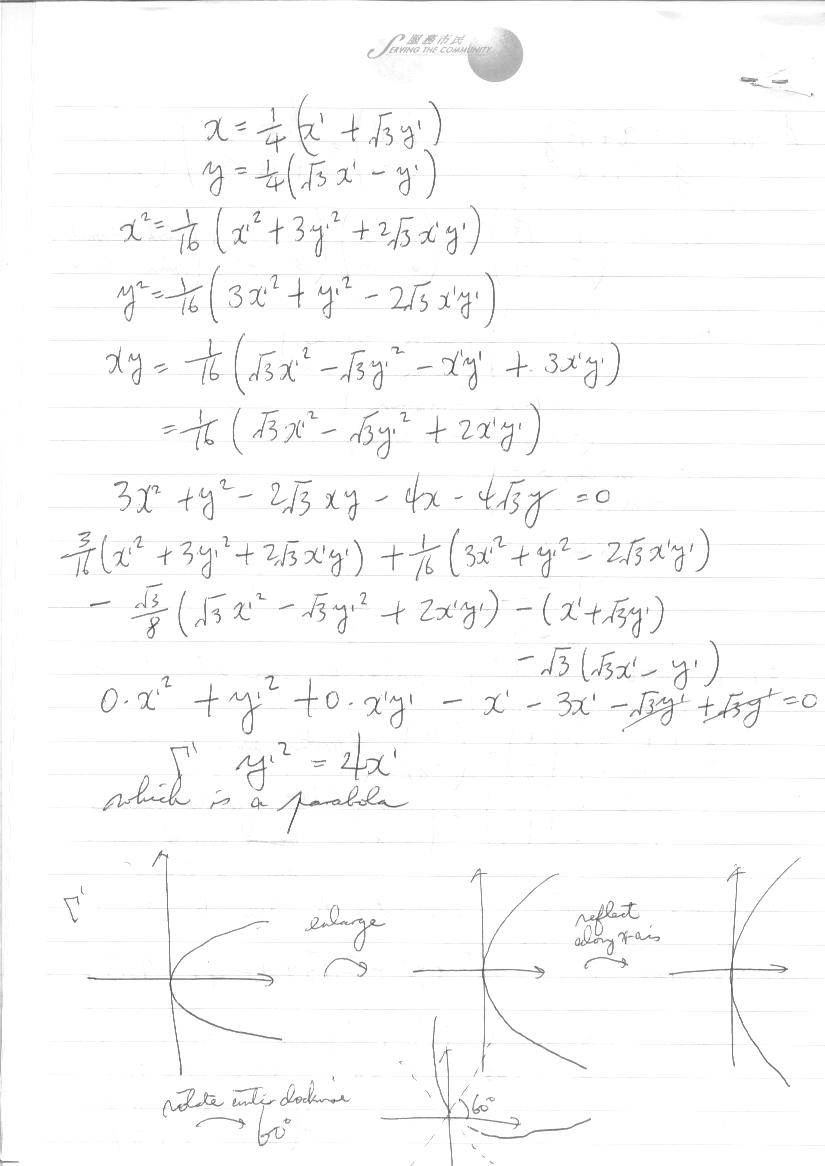 服務市民
SERVING THE COMMUNITY
x = 1/4 (x' + √3 y')
y = 1/4 (√3 x' - y')
x² = 1/16 (x'² + 3y'² + 2√3 x'y')
y² = 1/16 (3x'² + y'² - 2√3 x'y')
xy = 1/16 (√3x'² - √3y'² - x'y' + 3x'y')
= 1/16 (√3x'² - √3y'² + 2x'y')
3x² + y² - 2√3 xy - 4x - 4√3 y = 0
3/16 (x'² + 3y'² + 2√3 x'y') + 1/16 (3x'² + y'² - 2√3 x'y')
- √3/8 (√3 x'² - √3 y'² + 2x'y') - (x' + √3y')
- √3 (√3x' - y')
0·x'² + y'² + 0·x'y' - x' - 3x' - √3y' + √3y' = 0
Γ' y'² = 4x'
which is a parabola
Γ'
enlarge
reflect
along x-axis
rotate anti-clockwise
60°
60°